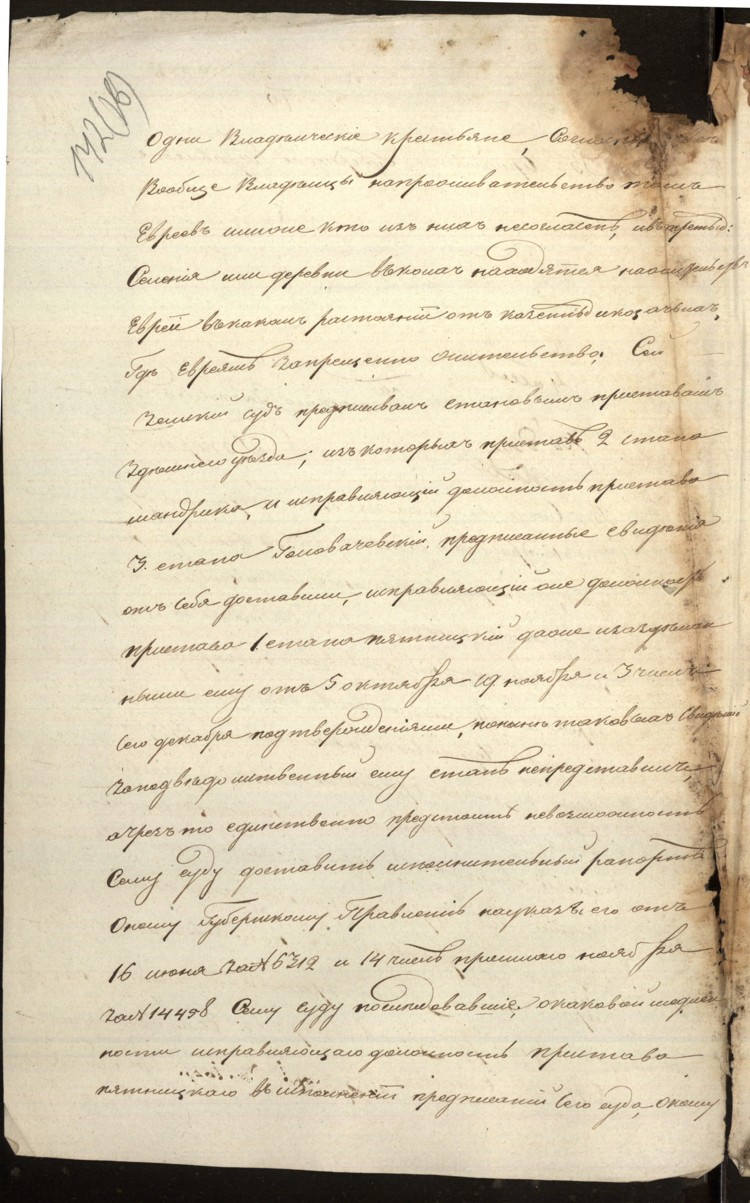 142(об)
Одни Владѣльческіе крестьяне,
Вообще Владѣльцы напроживательство тамъ
Евреевъ илиже кто изъ нихъ несогласенъ, ивъ третьихъ:
Селенія или деревни въкоихъ находятся
Еврей въкакомъ растояніи отъ
Гдѣ Евреямъ запрещенно жительство; Сей
Земскій судъ предписывалъ становымъ приставамъ
Здѣшняго уѣзда; изъ которыхъ приставъ 2 стана
шандрика, и исправляющій должность пристава
3. стана Головачевскій, предписанные свѣденія
отъ себя доставили, исправляющій же должность
пристава 1 стана пятницкій
ныши ему отъ 5 октября 19 ноября и 3 числъ
сего декабря подтвержденіями, понынѣ таковыхъ свѣденій
заподвѣдомственный ему станъ непредставилъ,
ачрезъ то единственно предстоитъ невозможность
Сему суду доставить исполнительный рапортъ
Оному Губернскому Правленію науказъ его отъ
16 июня за№ 6312 и 14 числъ прошлаго ноября
за№ 14498 Сему суду последовавшіе, окаковой медлен
ности исправляющаго должность пристава
пятницкаго въ исполненіи предписаній сего суда, Оному